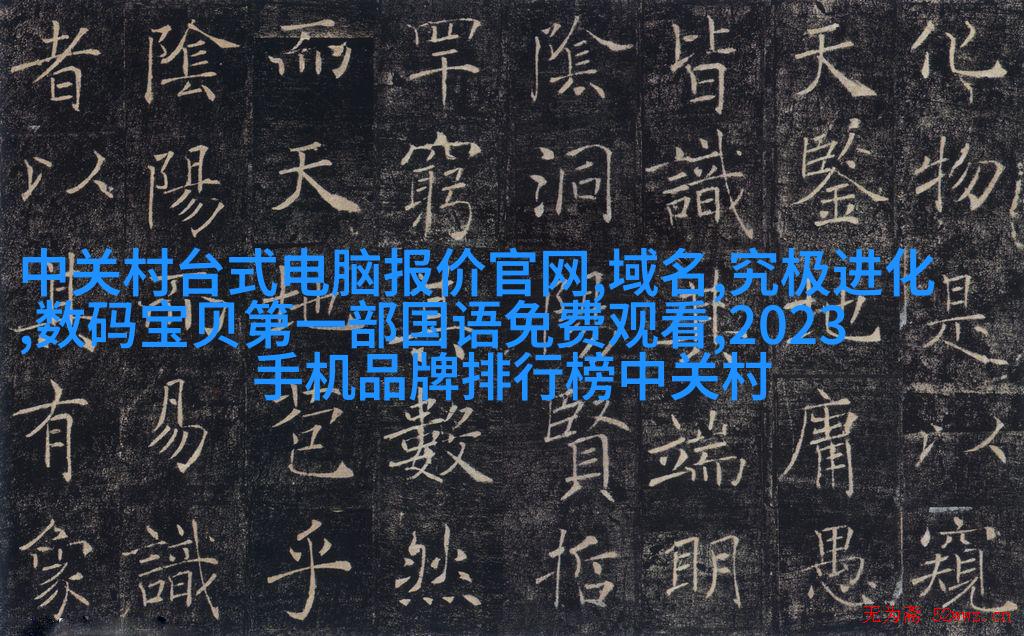 中关村台式电脑报价官网,域名,究极进化
,数码宝贝第一部国语免费观看,2023
手机品牌排行榜中关村
化物是以窺
天鑒地庸愚
皆識其端明
陰洞陽賢哲
罕窮其數然
而天地包乎
陰陽而易識
者以其有象
无为斋 52wwz.cn